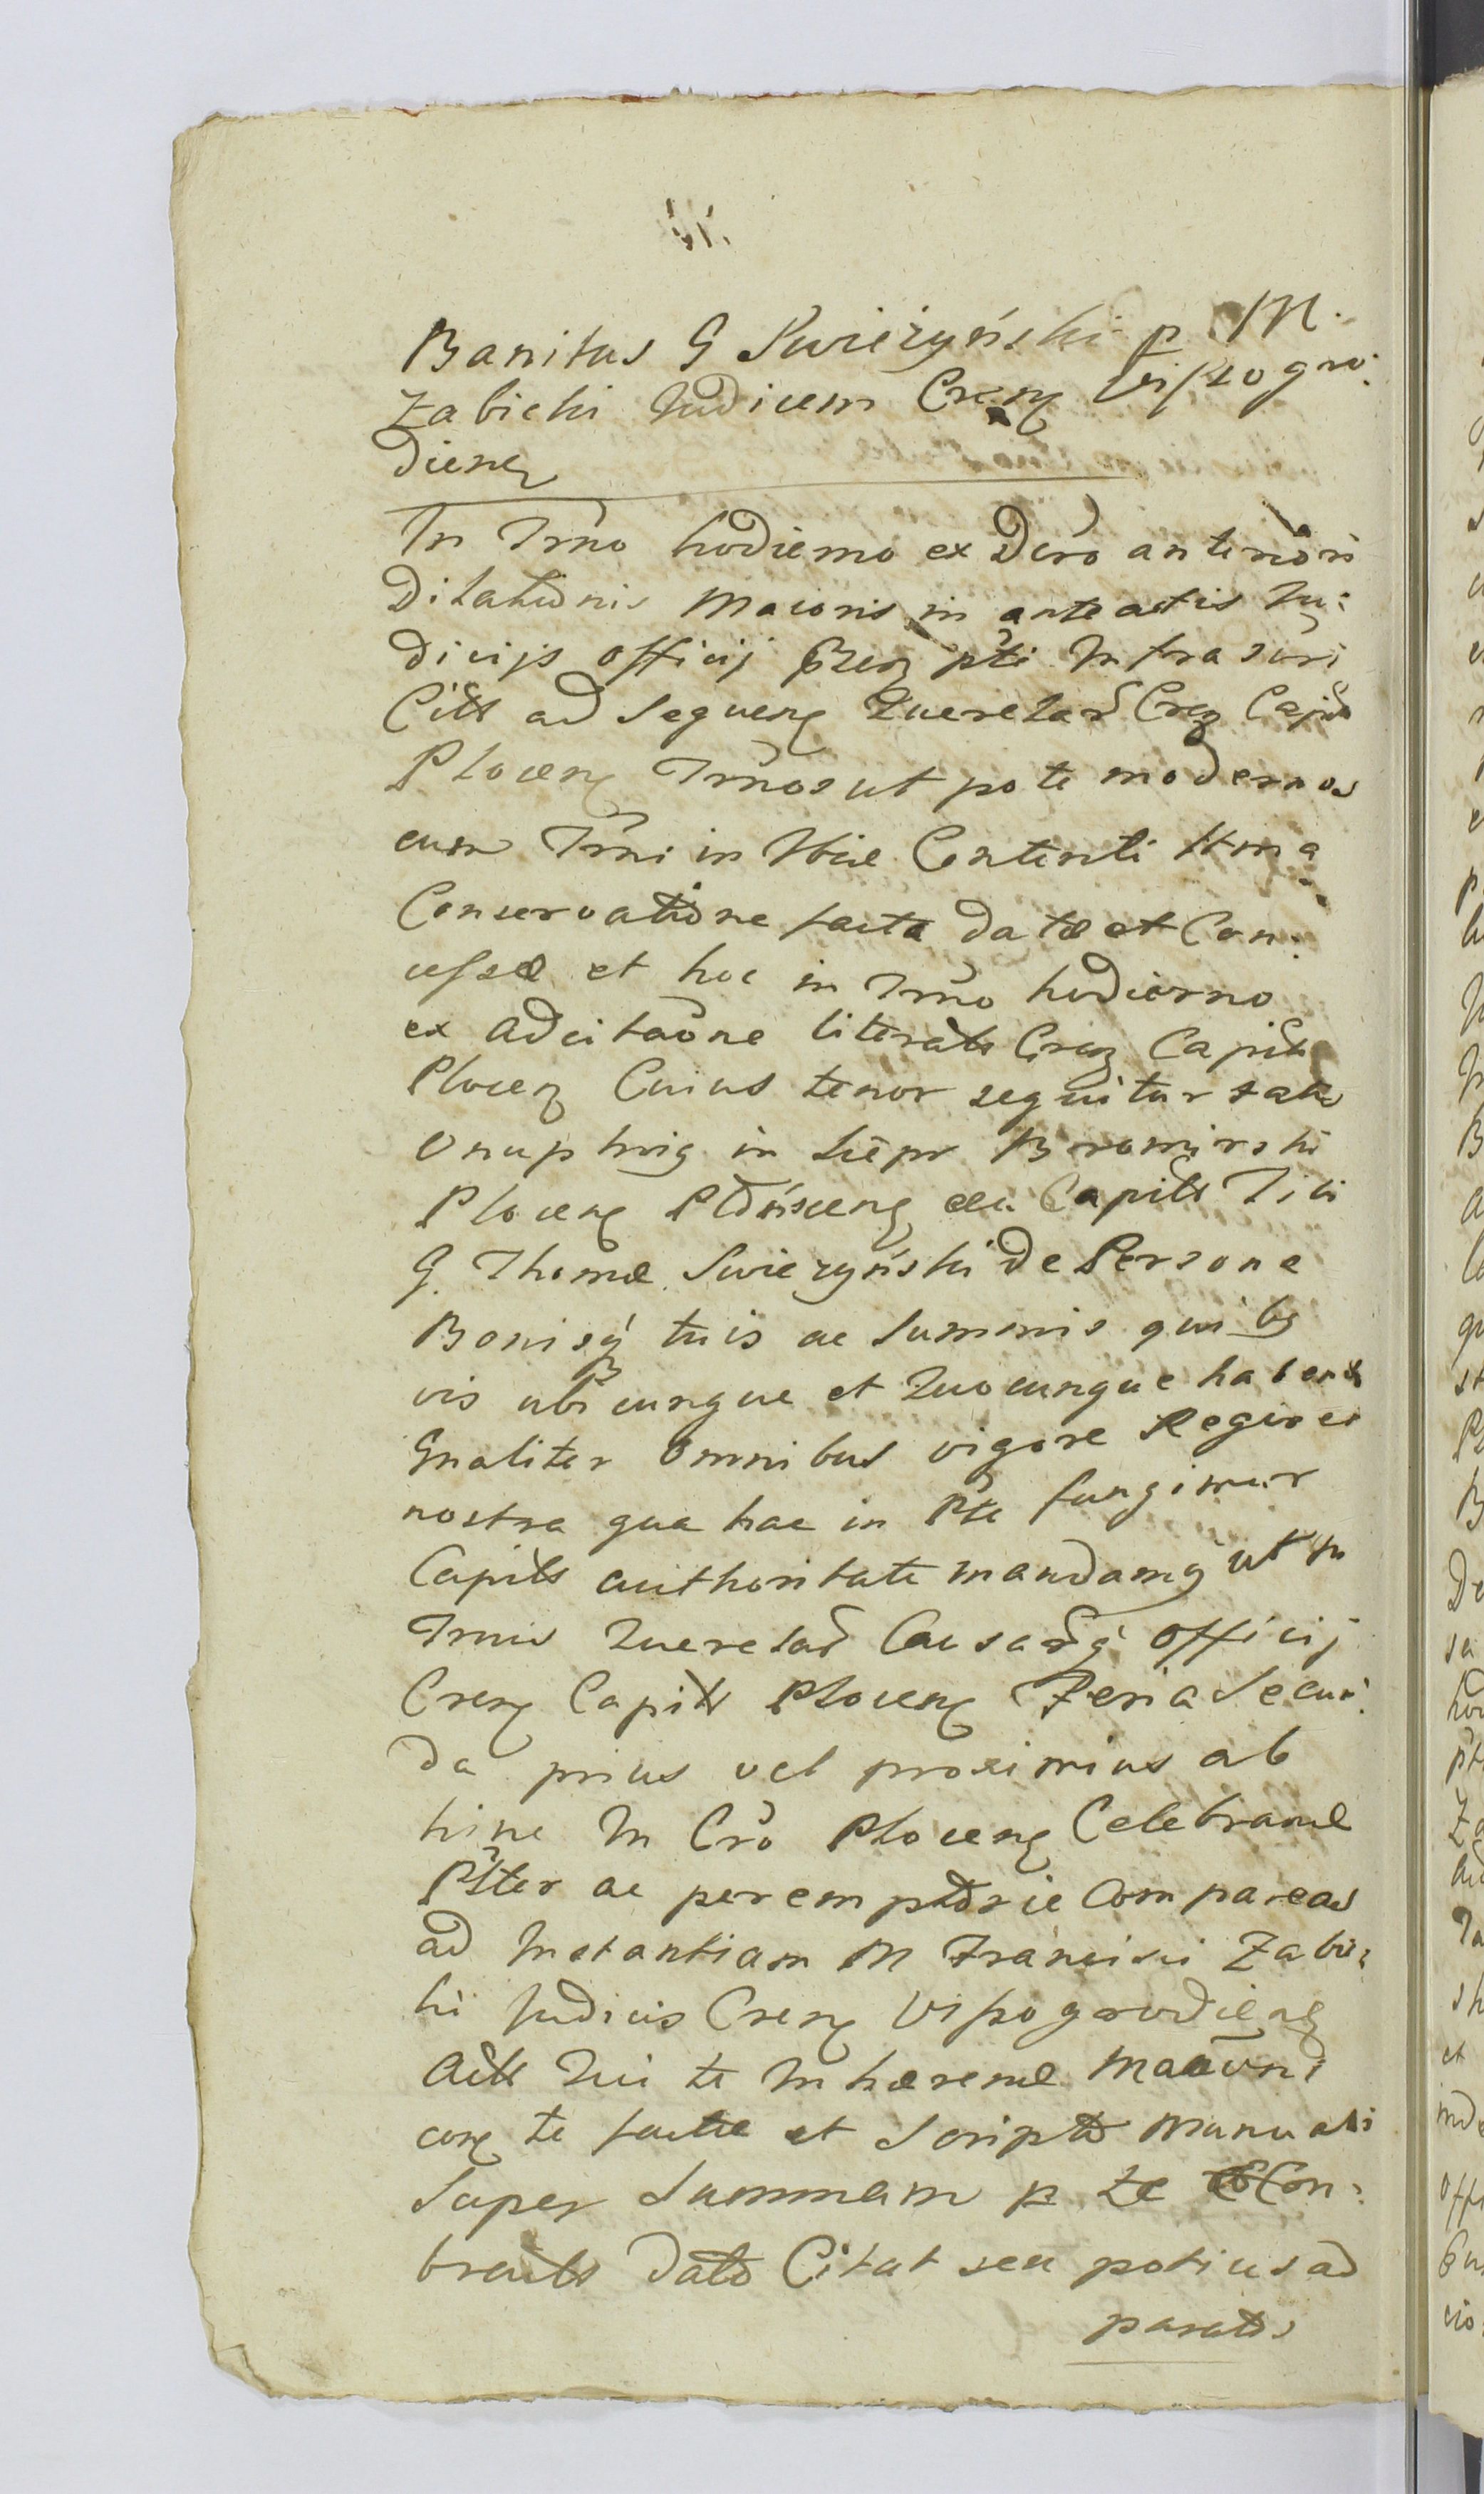 Banitus G Swieżyński p M.
Zabicki Judicem Crenz Viszogro:
dienz
In Trno hodierno ex Dcro anteriori
Dilationis Maioris in anteactis Ju:
dicijs officij pti Infrascri
Citt ad sequenz Querelar Crenz Capit
Plocenz Trnos ut pote modernos
cum Trni in Contenti
Conservatione facta datæ et Con:
cessæ et hoc in Trno hodierno
ex Adcitaone literali Crenz Capit
Plocenz Cuius tenor sequitur talis
Onuphrig in Liepr Bromirski
Plocenz Capitt Tibi
G. Thomæ Swiezyński de Persona
Bonisq tuis ac Summis quibg
vis ubicunque et Quocunque habent
Gnaliter omnibus vigore Regia et
nostra qua hac in Pte fungimur
Capitt authoritate mandamg ut in
Trnis Querelar Causarq officij
Crenz Capitt Plocenz Feria Secun:
da prius vel proximius ab
hinc In Cro Plocenz Celebrandæ
Plter ac peremptorie Compareas
ad Instantiam M Francisci Zabic:
ki Judicis Crenz Viszogrodienz
Actt Qui te Inhærendæ
conz te factæ et Scripto manuali
Super Summam p te Con:
tractt dato Citat seu potius ad
paratis